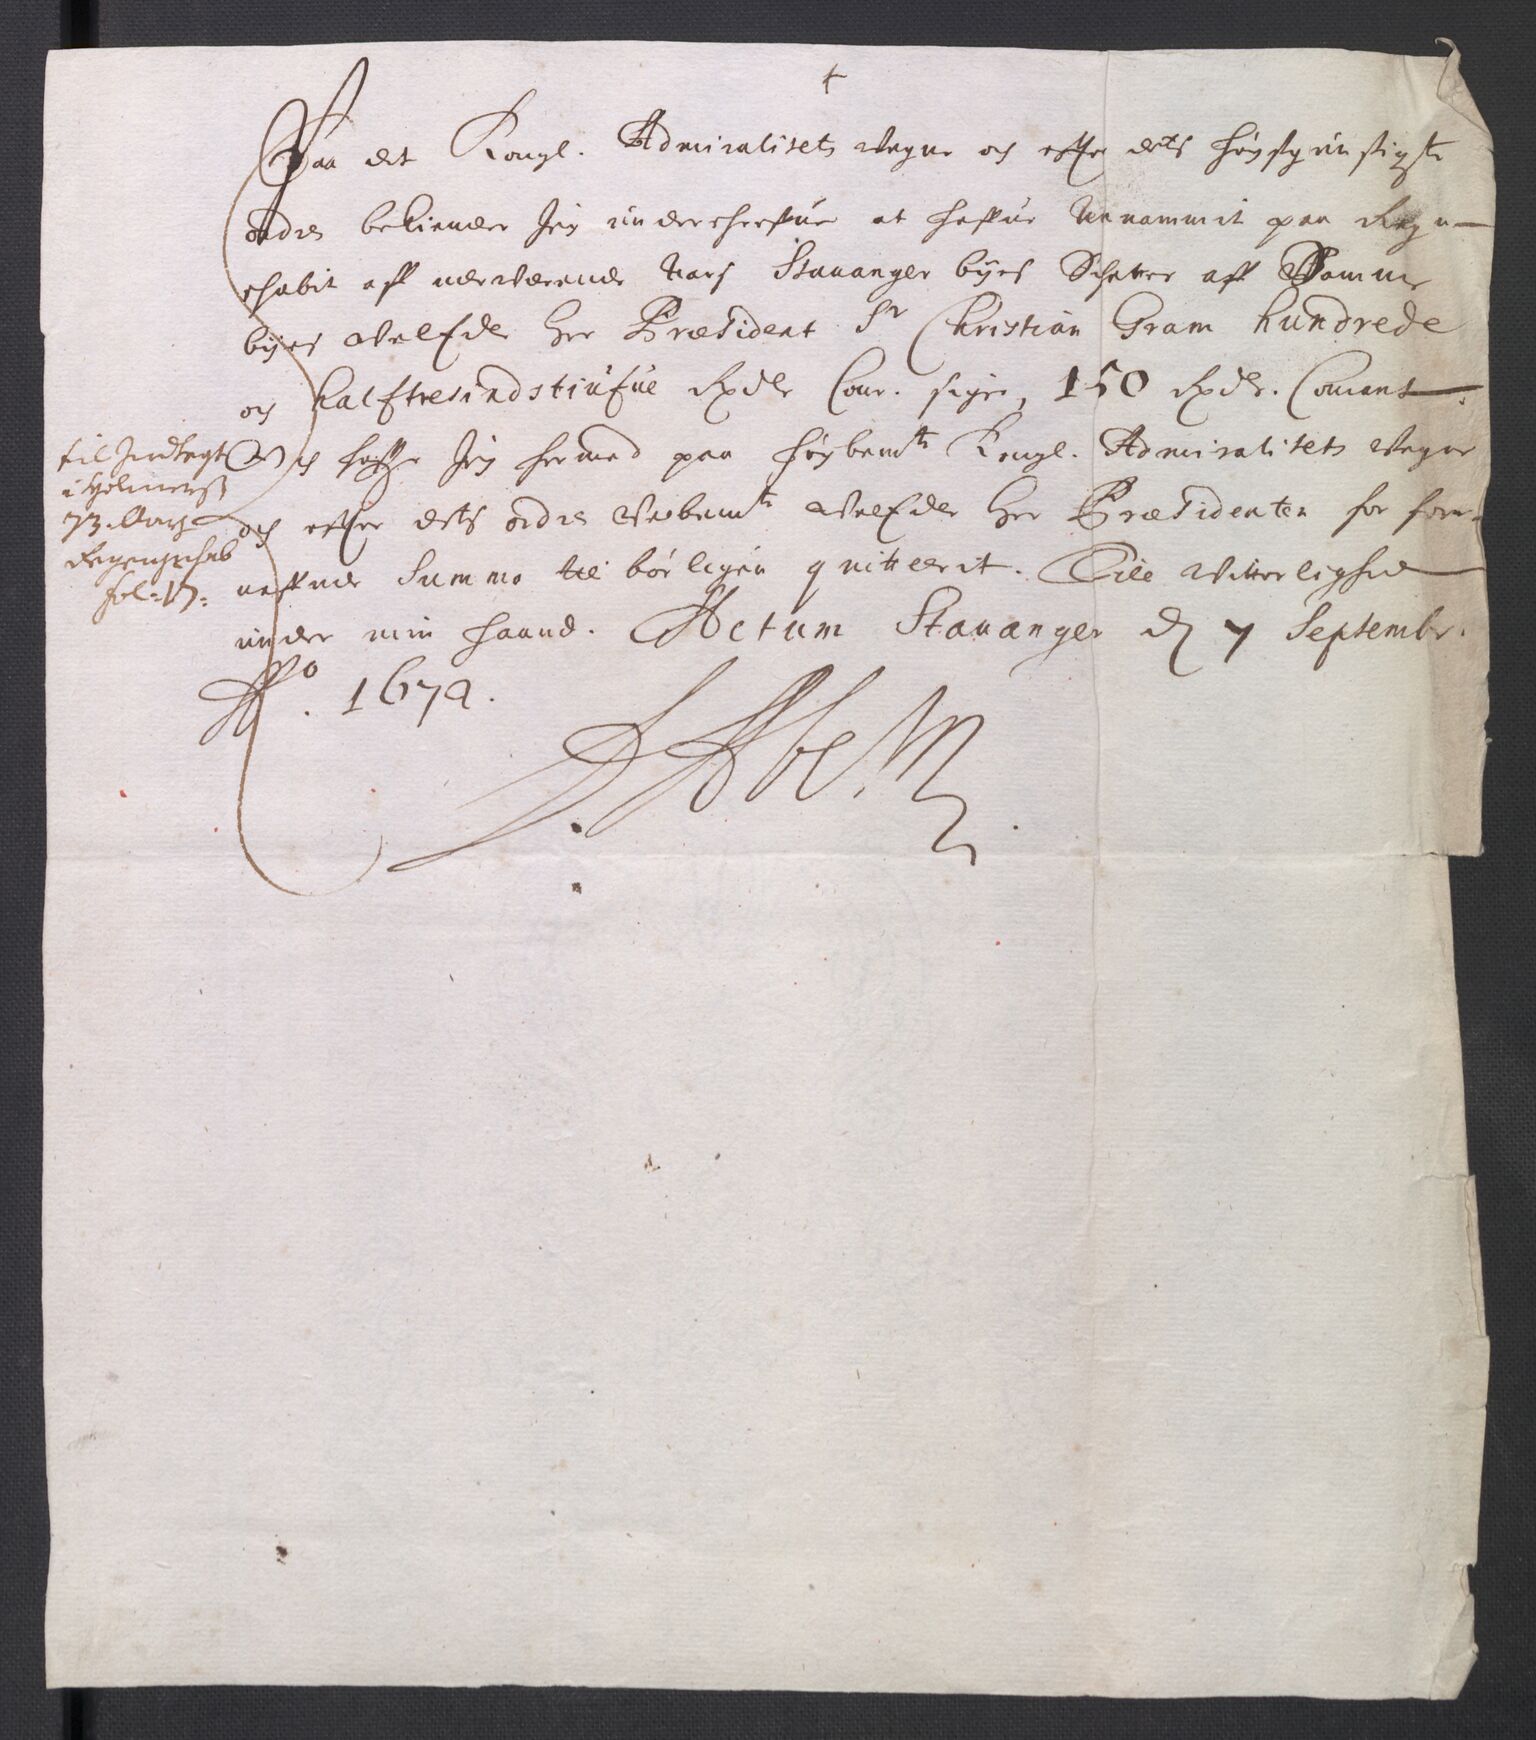 Paa det Kongl. Admiralitets Vegne och effter dets høygunstigste
ordre bekiender Jeg underschreffne at haffue Annammit paa Regn-
schabit aff nerværende Aars Stauanger byes Schatter aff Samme
byes Velb:de Her Præsident Sr Christian Gram hundrede
och halftresindstiufue Rxdlr Cour. siger, 150 Rxdlr. Courant.
Och haffr Jeg hermed paa høybemte Kongl. Admiralitets Vegne
och effter dets ordre Velbemte Velb:de Her Præsidenten for for-
neffnde Summa til børligen qvitterit. Til Vitterlighed
under min haand. Actum Stauanger d 7 Septembr.
Ao. 1674.
til Indtegt
i Holmens
73. Aars
Regenschab
fol: 17: